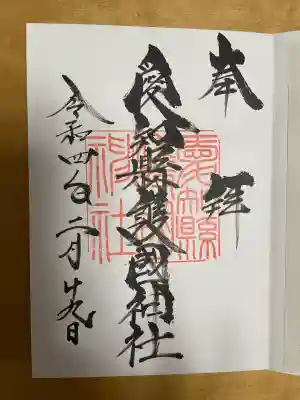 奉拝
愛知縣護國神社
令和四年二月廿九日
愛知縣護國神社